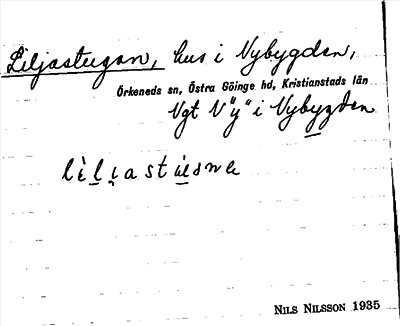 Liljastugan, hus i Nybygden,
Örkeneds sn, Östra Göinge hd, Kristianstads län
Vgt V "y" i Nybygden
NILS NILSSON 1935